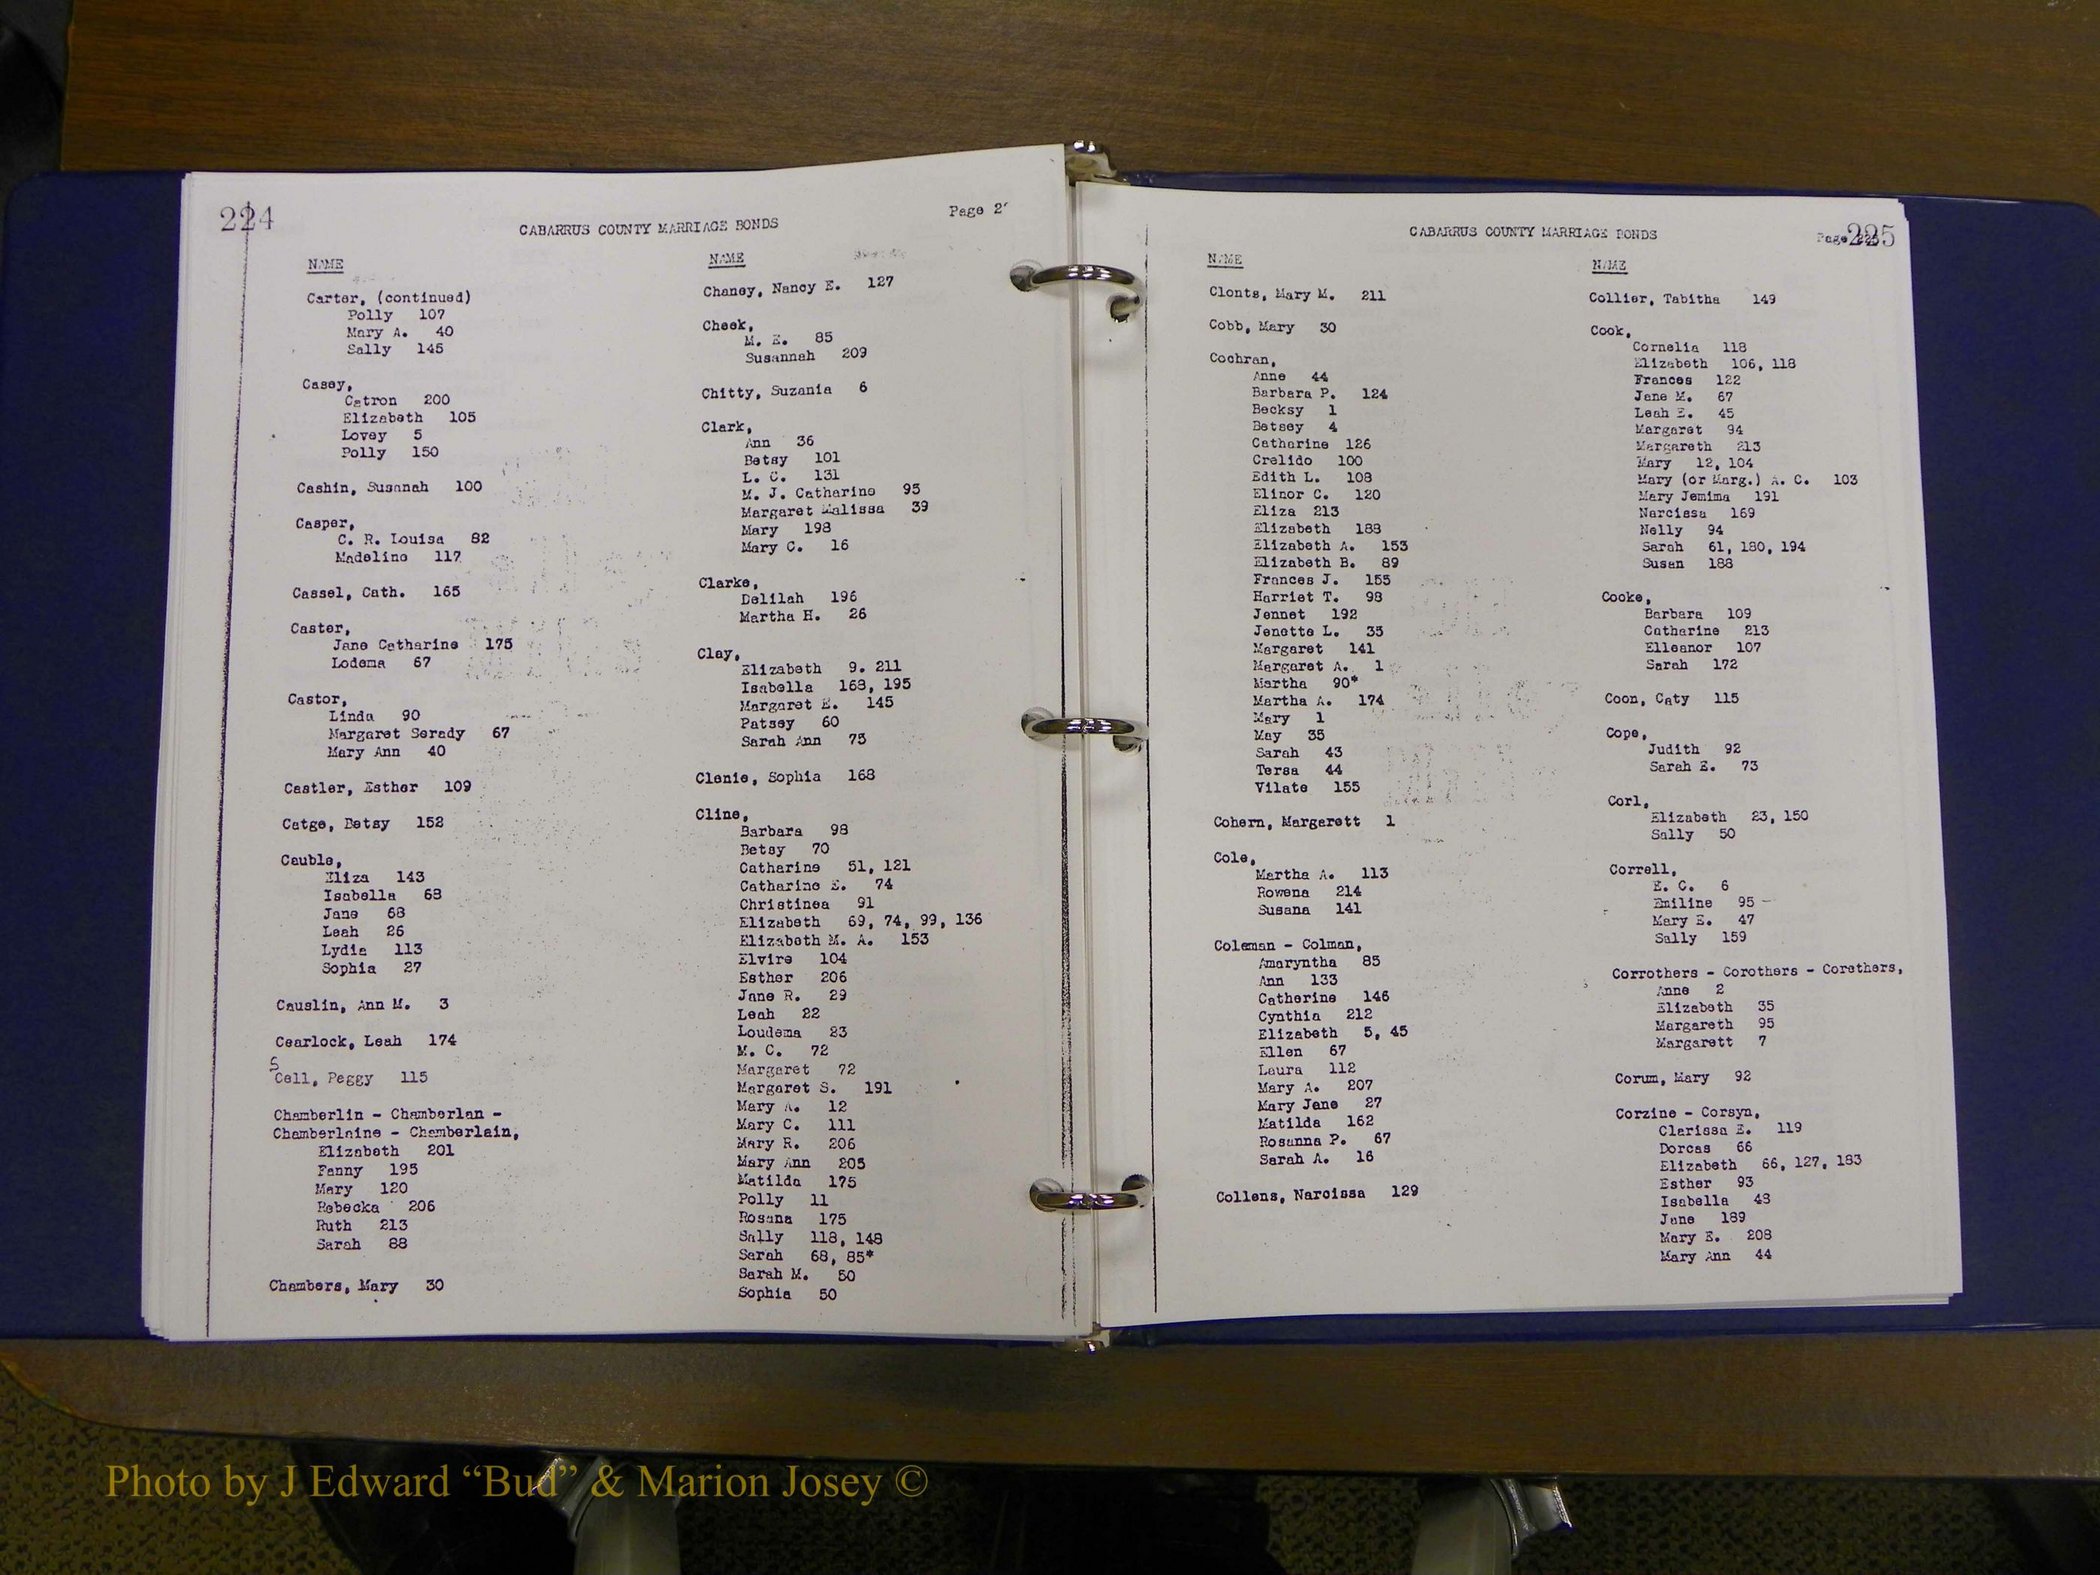 224
Page 2
CABARRUS COUNTY MARRIAGE BONDS
NAME
Carter, (continued)
Polly 107
Mary A. 40
Sally 145
Casey,
Catron 200
Elizabeth 105
Lovey 5
Polly 150
Cashin, Susanah 100
Casper,
C. R. Louisa 82
Madeline 117
Cassel, Cath. 165
Caster,
Jane Catharine 175
Lodema 67
Castor,
Linda 90
Margaret Serady 67
Mary Ann 40
Castler, Esther 109
Catge, Betsy 152
Cauble,
Eliza 143
Isabella 68
Jane 68
Leah 26
Lydia 113
Sophia 27
Causlin, Ann M. 3
Cearlock, Leah 174
S
Cell, Peggy 115
Chamberlin - Chamberlan -
Chamberlaine - Chamberlain,
Elizabeth 201
Fanny 195
Mary 120
Rebecka 206
Ruth 213
Sarah 88
Chambers, Mary 30
NAME
Chaney, Nancy E. 127
Cheek,
M. E. 85
Susannah 209
Chitty, Suzania 6
Clark,
Ann 36
Betsy 101
L. C. 131
M. J. Catharine 95
Margaret Malissa 39
Mary 198
Mary C. 16
Clarke,
Delilah 196
Martha H. 26
Clay,
Elizabeth 9. 211
Isabella 168, 195
Margaret E. 145
Patsey 60
Sarah Ann 75
Clenie, Sophia 168
Cline,
Barbara 98
Betsy 70
Catharine 51, 121
Catharine E. 74
Christinea 91
Elizabeth 69, 74, 99, 136
Elizabeth M. A. 153
Elvira 104
Esther 206
Jane R. 29
Leah 22
Loudema 23
M. C. 72
Margaret 72
Margaret S. 191
Mary A. 12
Mary C. 111
Mary R. 206
Mary Ann 205
Matilda 175
Polly 11
Rosana 175
Sally 118, 148
Sarah 68, 85*
Sarah M. 50
Sophia 50
CABARRUS COUNTY MARRIAGE BONDS
Page 225
NAME
Clonts, Mary M. 211
Cobb, Mary 30
Cochran,
Anne 44
Barbara P. 124
Becksy 1
Betsey 4
Catharine 126
Crelido 100
Edith L. 108
Elinor C. 120
Eliza 213
Elizabeth 188
Elizabeth A. 153
Elizabeth B. 89
Frances J. 155
Harriet T. 98
Jennet 192
Jenette L. 35
Margaret 141
Margaret A. 1
Martha 90*
Martha A. 174
Mary 1
May 35
Sarah 43
Tersa 44
Vilate 155
Cohern, Margarett 1
Cole,
Martha A. 113
Rowena 214
Susana 141
Coleman - Colman,
Amaryntha 85
Ann 133
Catherine 146
Cynthia 212
Elizabeth 5, 45
Ellen 67
Laura 112
Mary A. 207
Mary Jane 27
Matilda 162
Rosanna P. 67
Sarah A. 16
Collens, Narcissa 129
NAME
Collier, Tabitha 149
Cook,
Cornelia 118
Elizabeth 106, 118
Frances 122
Jane M. 67
Leah E. 45
Margaret 94
Margareth 213
Mary 12, 104
Mary (or Marg.) A. C. 103
Mary Jemima 191
Narcissa 169
Nelly 94
Sarah 61, 180, 194
Susan 188
Cooke,
Barbara 109
Catharine 213
Elleanor 107
Sarah 172
Coon, Caty 115
Cope,
Judith 92
Sarah E. 73
Corl,
Elizabeth 23, 150
Sally 50
Correll,
E. C. 6
Emiline 95
Mary E. 47
Sally 159
Corrothers - Corothers - Corethers,
Anne 2
Elizabeth 35
Margareth 95
Margarett 7
Corum, Mary 92
Corzine - Corsyn,
Clarissa E. 119
Dorcas 66
Elizabeth 66, 127, 183
Esther 93
Isabella 43
Jane 189
Mary E. 208
Mary Ann 44
Photo by J Edward “Bud” & Marion Josey ©